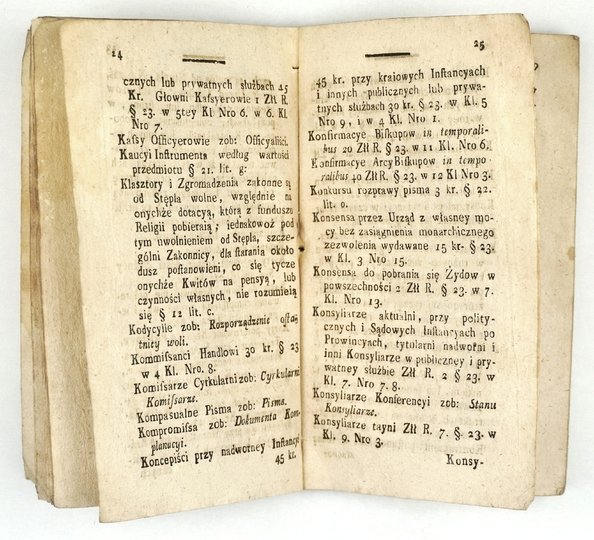 24
cznych lub prywatnych służbach 45
Kr. Głowni Kaſsyerowie 1 Złt R.
§ 23. w 5tey Kl Nro 6. w 6. Kl
Nro 7.
Kaſsy Officyerowie zob: Officyaliſci.
Kaucyi Inſtrumenta według wartości
przedmiotu § 21. lit. g:
Klasztory i Zgromadzenia zakonne są
od Stępla wolne, względnie na
onychże dotacyą, którą z funduszu
Religii pobieraią; iednakowoż pod
tym uwolnieniem od Stępla, szcze-
gólni Zakonnicy, dla ſtarania około
dusz poſtanowieni, co się tycze
onychże Kwitów na pensyą, lub
czynności własnych, nie rozumieią
się § 12 lit. c.
Kodycylle zob: Rozporządzenie oſtat
tniey woli.
Kommiſsanci Handlowi 30 kr. § 23
w 4 Kl. Nro. 8.
Komiſsarze Cyrkularni zob: Cyrkularni
Komiſsarze.
Kompasualne Pisma zob: Pisma.
Kompromiſsa zob: Dokumenta Kom-
planacyi.
Koncepiści przy nadworney Inſtancyi
45 kr.
25
45 kr. przy kraiowych Inſtancyach
i innych publicznych lub prywa-
tnych służbach 30 kr. § 23. w Kl. 5
Nro 9, i w 4 Kl. Nro 1.
Konfirmacye Biſkupow in temporali-
bus 20 Złt R. § 23. w 11 Kl. Nro 6.
Konfirmacye ArcyBiſkupow in tempo
ralibus 40 Złt R. § 23. w 12 Kl Nro 3.
Konkursu rozprawy pisma 3 kr. § 22.
lit. o.
Konsensa przez Urząd z własney mo-
cy bez zasiągnienia monarchicznego
zezwolenia wydawane 15 kr- § 23.
w Kl. 3 Nro 15.
Konsensa do pobrania się Żydow w
powszechności 2 Złt R. § 23. w 7.
Kl. Nro 13.
Konsyliarze aktualni, przy polity-
cznych i Sądowych Inſtancyach po
Prowincyach, tytularni nadworni i
inni Konsyliarze w publiczney i pry-
watney służbie Złt R. 2 § 23. w
Kl. 7. Nro 7. 8.
Konsyliarze Konferencyi zob: Stanu
Konsyliarze.
Konsyliarze tayni Złt R. 7. §. 23. w
Kl. 9. Nro 3.
Konsy-